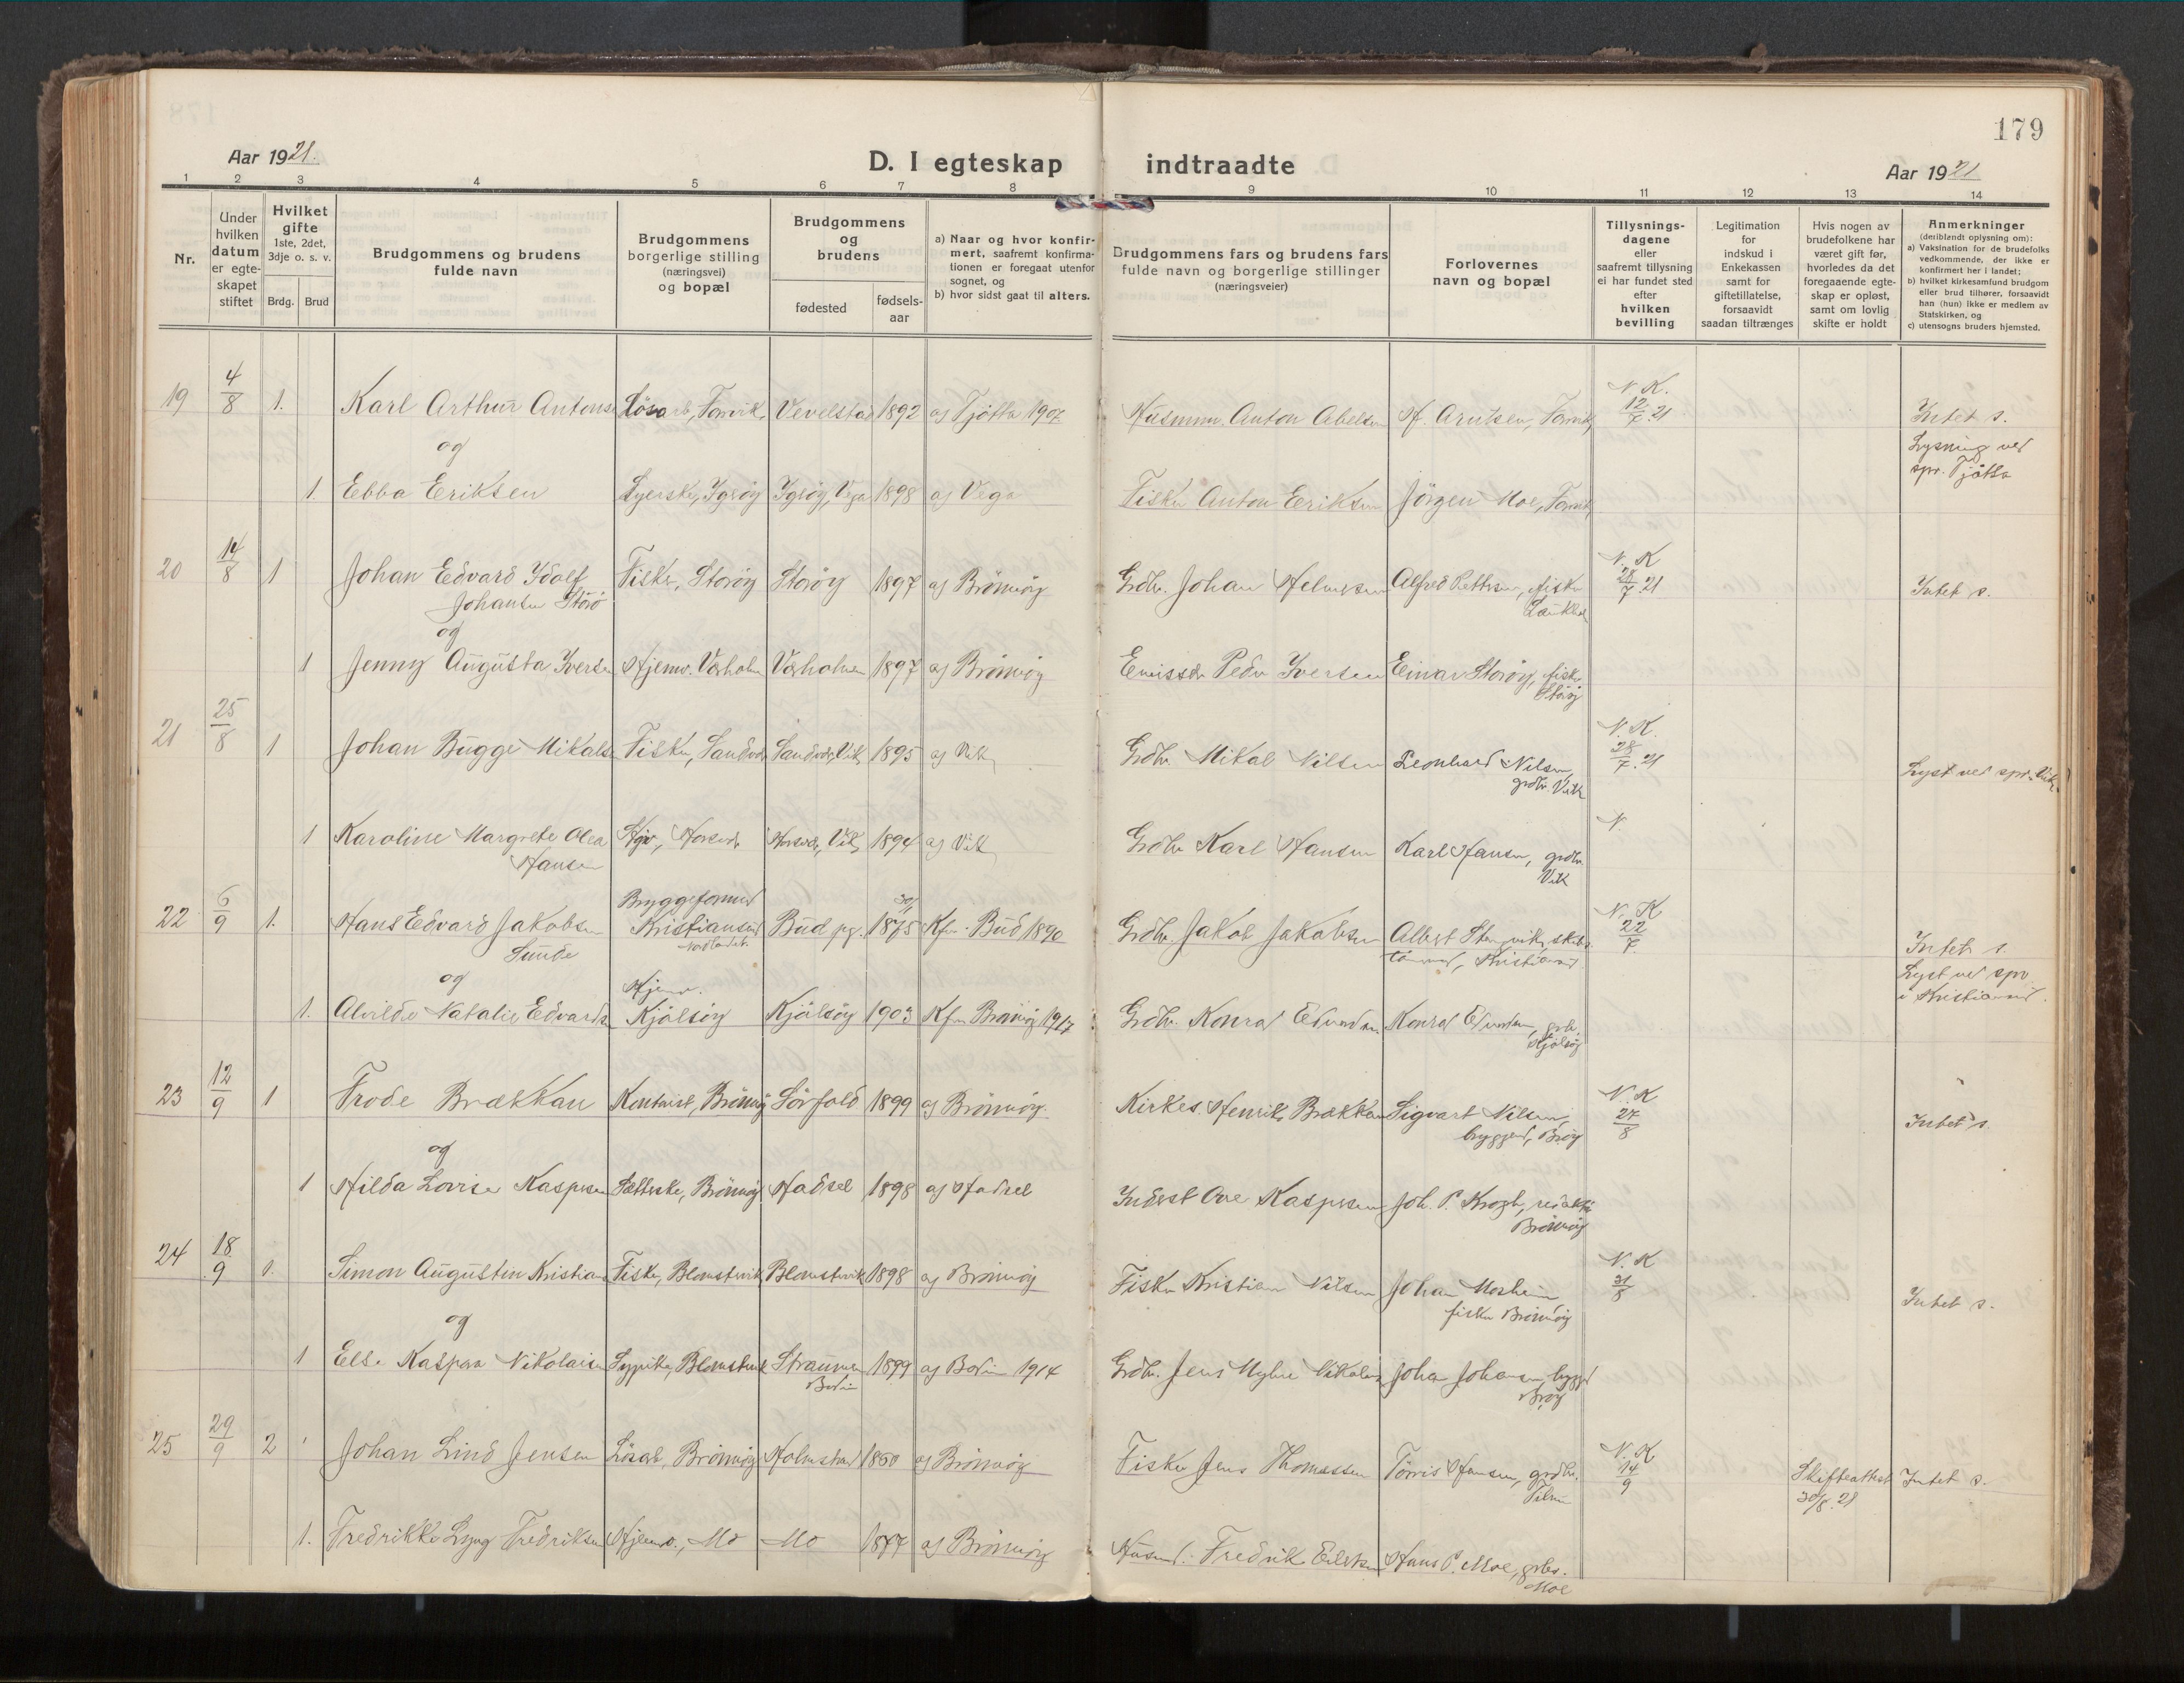 179
Aar 1921.
D. I egteskap indtraadte
Aar 1921
1 2 3 4 5 6 7 8 9 10 11 12 13 14
Nr.
Under hvilken datum er egteskapet stiftet
Hvilket gifte 1ste, 2det, 3dje o. s. v.
Brdg. Brud
Brudgommens og brudens fulde navn
Brudgommens borgerlige stilling (næringsvei) og bopæl
Brudgommens og brudens
fødested
fødsels-aar
a) Naar og hvor konfirmert, saafremt konfirmationen er foregaat utenfor sognet, og
b) hvor sidst gaat til alters.
Brudgommens fars og brudens fars fulde navn og borgerlige stillinger (næringsveier)
Forlovernes navn og bopæl
Tillysningsdagene eller saafremt tillysning ei har fundet sted efter hvilken bevilling
Legitimation for indskud i Enkekassen samt for giftetillatelse, forsaavidt saadan tiltrænges
Hvis nogen av brudefolkene har været gift før, hvorledes da det foregaaende egteskap er opløst, samt om lovlig skifte er holdt
Anmerkninger
(deriblandt oplysning om):
a) Vaksination for de brudefolks vedkommende, der ikke er konfirmert her i landet;
b) hvilket kirkesamfund brudgom eller brud tilhører, forsaavidt han (hun) ikke er medlem av Statskirken, og
c) utensogns bruders hjemsted.
19 4/8 1. Karl Arthur Antons Løsarb, Forvik, Vevelstad 1892 Tjøtta 1907 Husmm. Anton Abelsen H. Arntsen, Forvik N. K. 12/7.21 Intet s.
og
Lysning ved spr. Tjøtta
1. Ebba Eriksen Syerske, Ygsøy Ygsøy, Vega 1898 Vega Fisker Anton Eriksen Jørgen Moe, Forvik
20 14/8 1 Johan Edvard Idolf Fisker, Storøy Storøy 1897 Brönnöy Grdbr. Johan Helmersen Alfred Pettersen, fisker N. K 28/7.21 Intet s.
Johansen Storø
og
1 Jenny Augusta Iversen Hjemv. Vørholm Vørholmen 1897 Brönnöy Emissær Peder Iversen Einar Storøy, fisker
Storøy
21 25/8 1 Johan Bugge Mikals Fisker, Sandvær Sandvær, Vik, 1895 Vik Grdbr Mikal Nilsen Leonhard Nilsen, N. K. 28/7.21 Lyst ved spr. Vik
grdbr. Vik
1 Karoline Margrete Olea Hjv, Vik, 1894 Vik Grdbr Karl Hansen Karl Hansen, grdbr. N.
Hansen Vik
22 6/9 1. Hans Edvard Jakobsen Bryggeformand Kristiansund Nordlandet Bud pg. 1875 Kfm. Bud 1890 Grdbr. Jakob Jakobsen Albert N. K 22/7. Intet s.
Sunde
og
Lyst ved spr. i Kristiansund.
1. Alvilde Natalie Edvards Hjemv. Kjølsøy Kjølsøy 1903 Kfm Brönnöy 1917 Grdbr. Konrad Edvardsen. Konrad Edvardsen, grbr.
Kjølsøy
23 12/9 1 Frode Brækkan Kontorist, Brönnöy Sörfold 1899 Brönnöy. Kirkes. Henrik Brækkan Sigvart Nilsen, N. K 27/8 Intet s.
bryggem, Brøy
og
1 Hilda Lovise Kaspersen Sætterske, Brönnöy Hadsel 1898 Hadsel Inderst Ove Kaspersen Joh. P. Krogh, redaktör
Brönnöy
24 18/9 1. Simon Augustin Kristians Fisker, Blomstervik Blomstervik 1898 Brönnöy Fisker Kristian Nilsen Johan Mosheim N. K 31/8 Intet s.
fisker Brönnöy
og
1 Else Kaspara Nikolaisen Sypike, Blomstervik Straumen Bodin 1899 Bodin 1914 Grdbr. Jens Myhre Nikolais Johan Johansen, bygg
Brøy
25 29/9 2 Johan Lind Jensen Løsarb, Brönnöy Holmstad 1860 Brönnöy Fisker Jens Thomassen Tørris Hansen, grdbr. N. K 14/9 Skifteattest 30/8.21 Intet s.
Tilrem
1. Fredrikke Lyng Fredriksen Hjemv., Mo Mo 1877 Brönnöy Husmd. Fredrik Hans P. Moe, grbr.
Moe